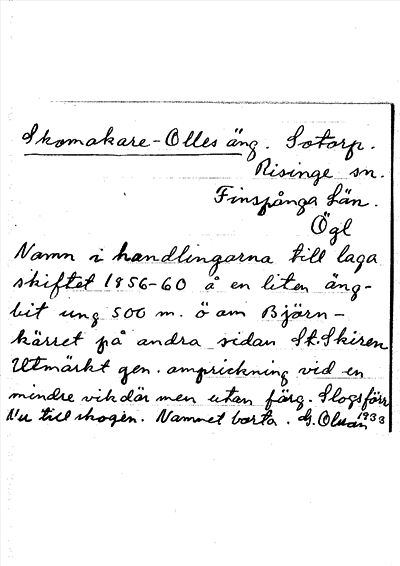 Skomakare-Olles äng. Sotorp.
Risinge sn.
Finspånga län.
Ögl
Namn i handlingarna till laga
skiftet 1856-60 å en liten äng-
bit ung 500 m. ö om Björn-
kärret på andra sidan St. Skiren
Utmärkt gen. amprickning vid en
mindre vik där men utan färg. Slogs förr
Nu till skogen. Namnet borta. G. Olsån 1933